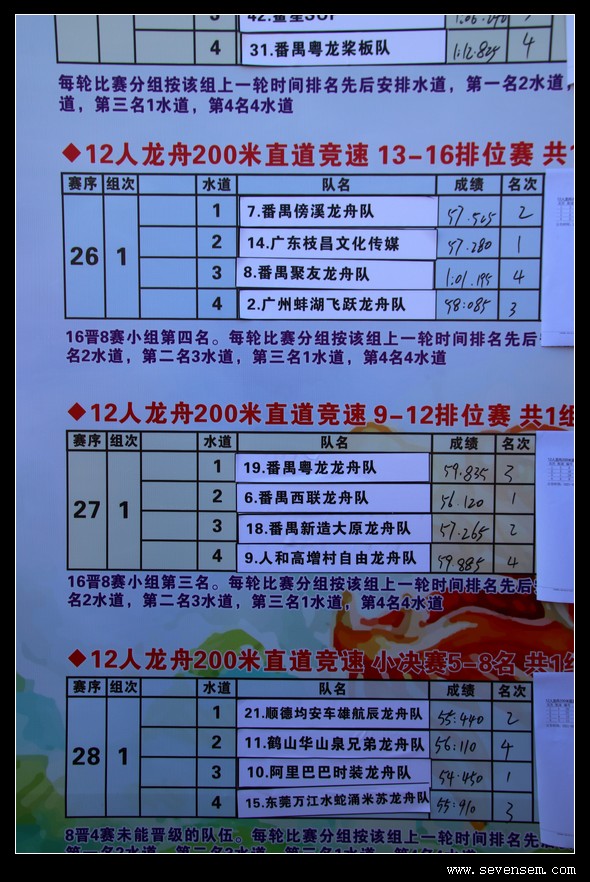 3 42.鳌星SUP 1:06.290 3
4 31.番禺粤龙桨板队 1:12.825 4
每轮比赛分组按该组上一轮时间排名先后安排水道，第一名2水道，
道，第三名1水道，第4名4水道
◆12人龙舟200米直道竞速 13-16排位赛 共1
赛序 组次 水道 队名 成绩 名次
26 1
1 7.番禺傍溪龙舟队 57.545 2
2 14.广东枝昌文化传媒 57.280 1
3 8.番禺聚友龙舟队 1:01.195 4
4 2.广州蚌湖飞跃龙舟队 58:085 3
16晋8赛小组第四名。每轮比赛分组按该组上一轮时间排名先后
名2水道，第二名3水道，第三名1水道，第4名4水道
◆12人龙舟200米直道竞速 9-12排位赛 共1组
赛序 组次 水道 队名 成绩 名次
27 1
1 19.番禺粤龙龙舟队 59.835 3
2 6.番禺西联龙舟队 56.120 1
3 18.番禺新造大原龙舟队 57.265 2
4 9.人和高增村自由龙舟队 59.885 4
16晋8赛小组第三名。每轮比赛分组按该组上一轮时间排名先后
名2水道，第二名3水道，第三名1水道，第4名4水道
◆12人龙舟200米直道竞速 小决赛5-8名 共1组
赛序 组次 水道 队名 成绩 名次
28 1
1 21.顺德均安车雄航辰龙舟队 55:440 2
2 11.鹤山华山泉兄弟龙舟队 56:110 4
3 10.阿里巴巴时装龙舟队 54.450 1
4 15.东莞万江水蛇涌米苏龙舟队 55:910 3
8晋4赛未能晋级的队伍。每轮比赛分组按该组上一轮时间排名先后
www.sevensem.com